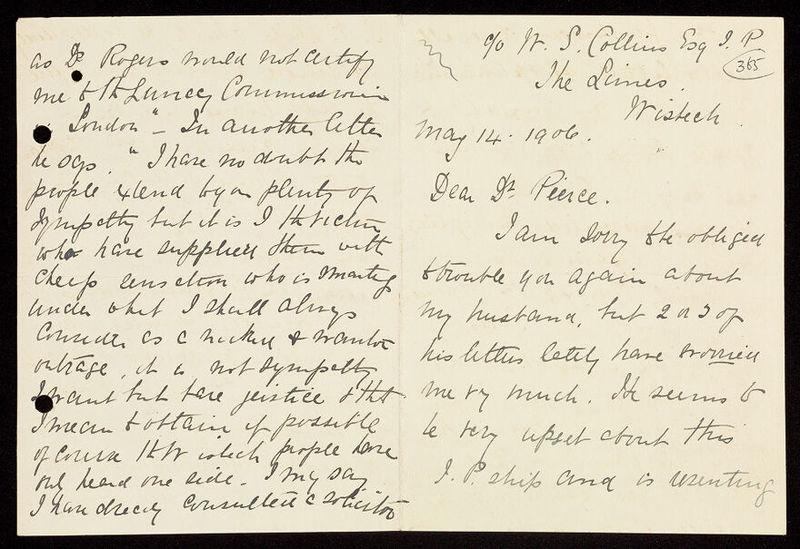 as Dr Rogers would not certify
me to the Lunacy Commissioners
in London" - In another letter
he says. "I have no doubt the
people extend to you plenty of
sympathy but it is I the victim
who have supplied them with
cheap sensation who is smarting
under what I shall always
consider as a wicked & wanton
outrage, it is not sympathy
I want but bare justice & that
I mean to obtain if possible
of course the Wisbech people have
only heard one side. I may say
I have already consulted a solicitor
c/o W. S. Collins Esq J. P
365
The Limes.
Wisbech
May 14. 1906.
Dear Dr Pierce.
I am sorry to be obliged
to trouble you again about
my husband, but 2 or 3 of
his letters lately have worried
me vy much. He seems to
be very upset about this
J. P. ship and is resenting